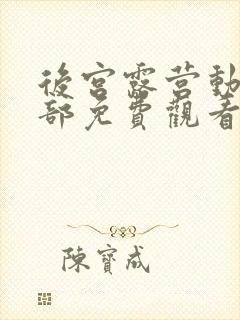 後宮露营動
部免費觀看
陳寶成